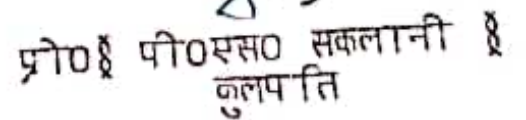 प्रो0 पी0एस0 सकलानी
कुलपति